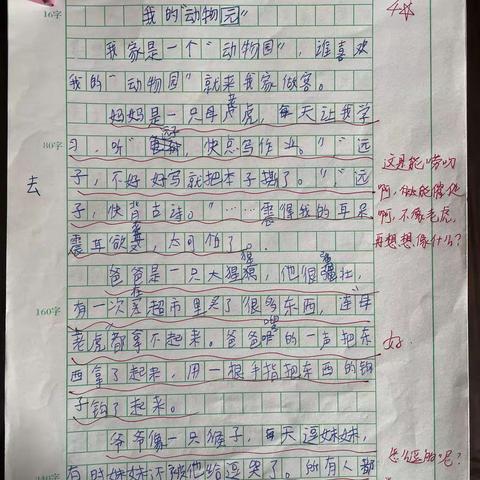 我的“动物园”
我家是一个“动物园”，谁喜欢
我的“动物园”就来我家做客。
妈妈是一只母老虎，每天让我学
习，听“，快点写作业。”“远
子，不好好写就把本子撕了。”“远
子，快背古诗。”……震得我的耳朵
震耳欲聋，太可怕了
爸爸是一只大猩猩，他很强壮，
有一次在超市里买了很多东西，连母
老虎都拿不起来。爸爸嘿的一声把东
西拿了起来，用一根手指把东西的钩
子钩了起来。
爷爷像一只猴子，每天逗妹妹，
有时妹妹还被他给逗哭了。所有人都
16字
80字
160字
去
4☆
这是能唠叨
啊，做能像他
啊，不像老虎，
再想想像什么？
好
怎么逗的呢？